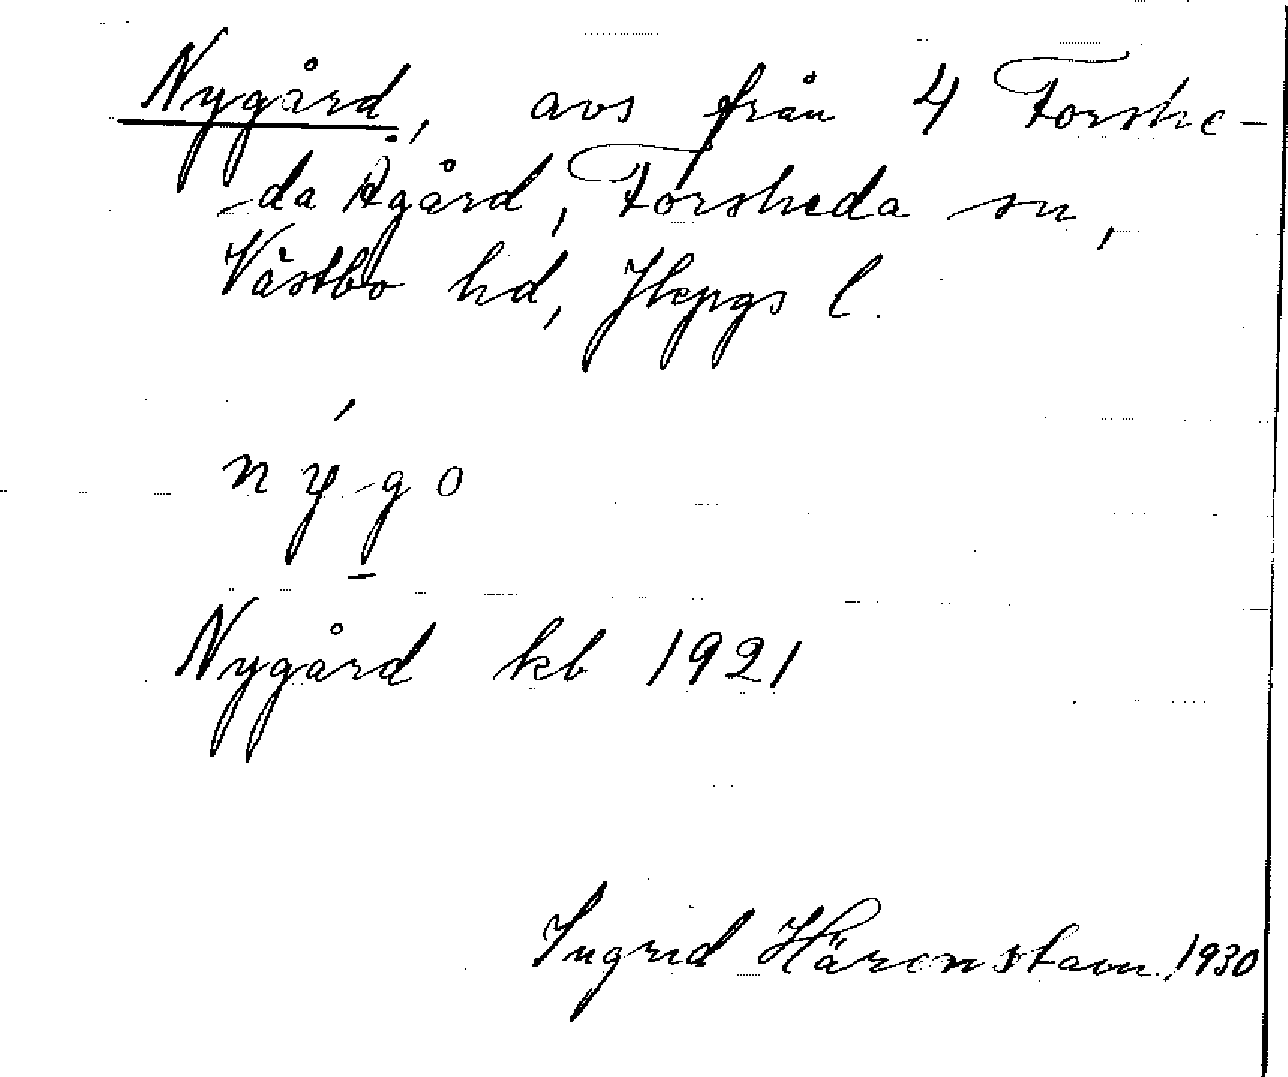 Nygård, avs från 4 Forshe-
da Ågård, Forsheda sn,
Västbo hd, Jkpgs l.
nýgo
Nygård kb 1921
Ingrid Härenstam 1930